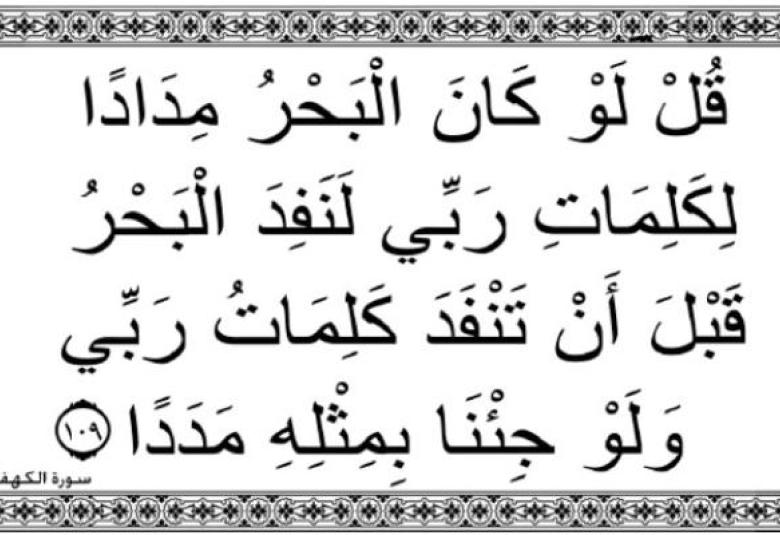 قُلْ لَوْ كَانَ الْبَحْرُ مِدَادًا
لِكَلِمَاتِ رَبِّي لَنَفِدَ الْبَحْرُ
قَبْلَ أَنْ تَنْفَدَ كَلِمَاتُ رَبِّي
وَلَوْ جِئْنَا بِمِثْلِهِ مَدَدًا ١٠٩
سورة الكهف